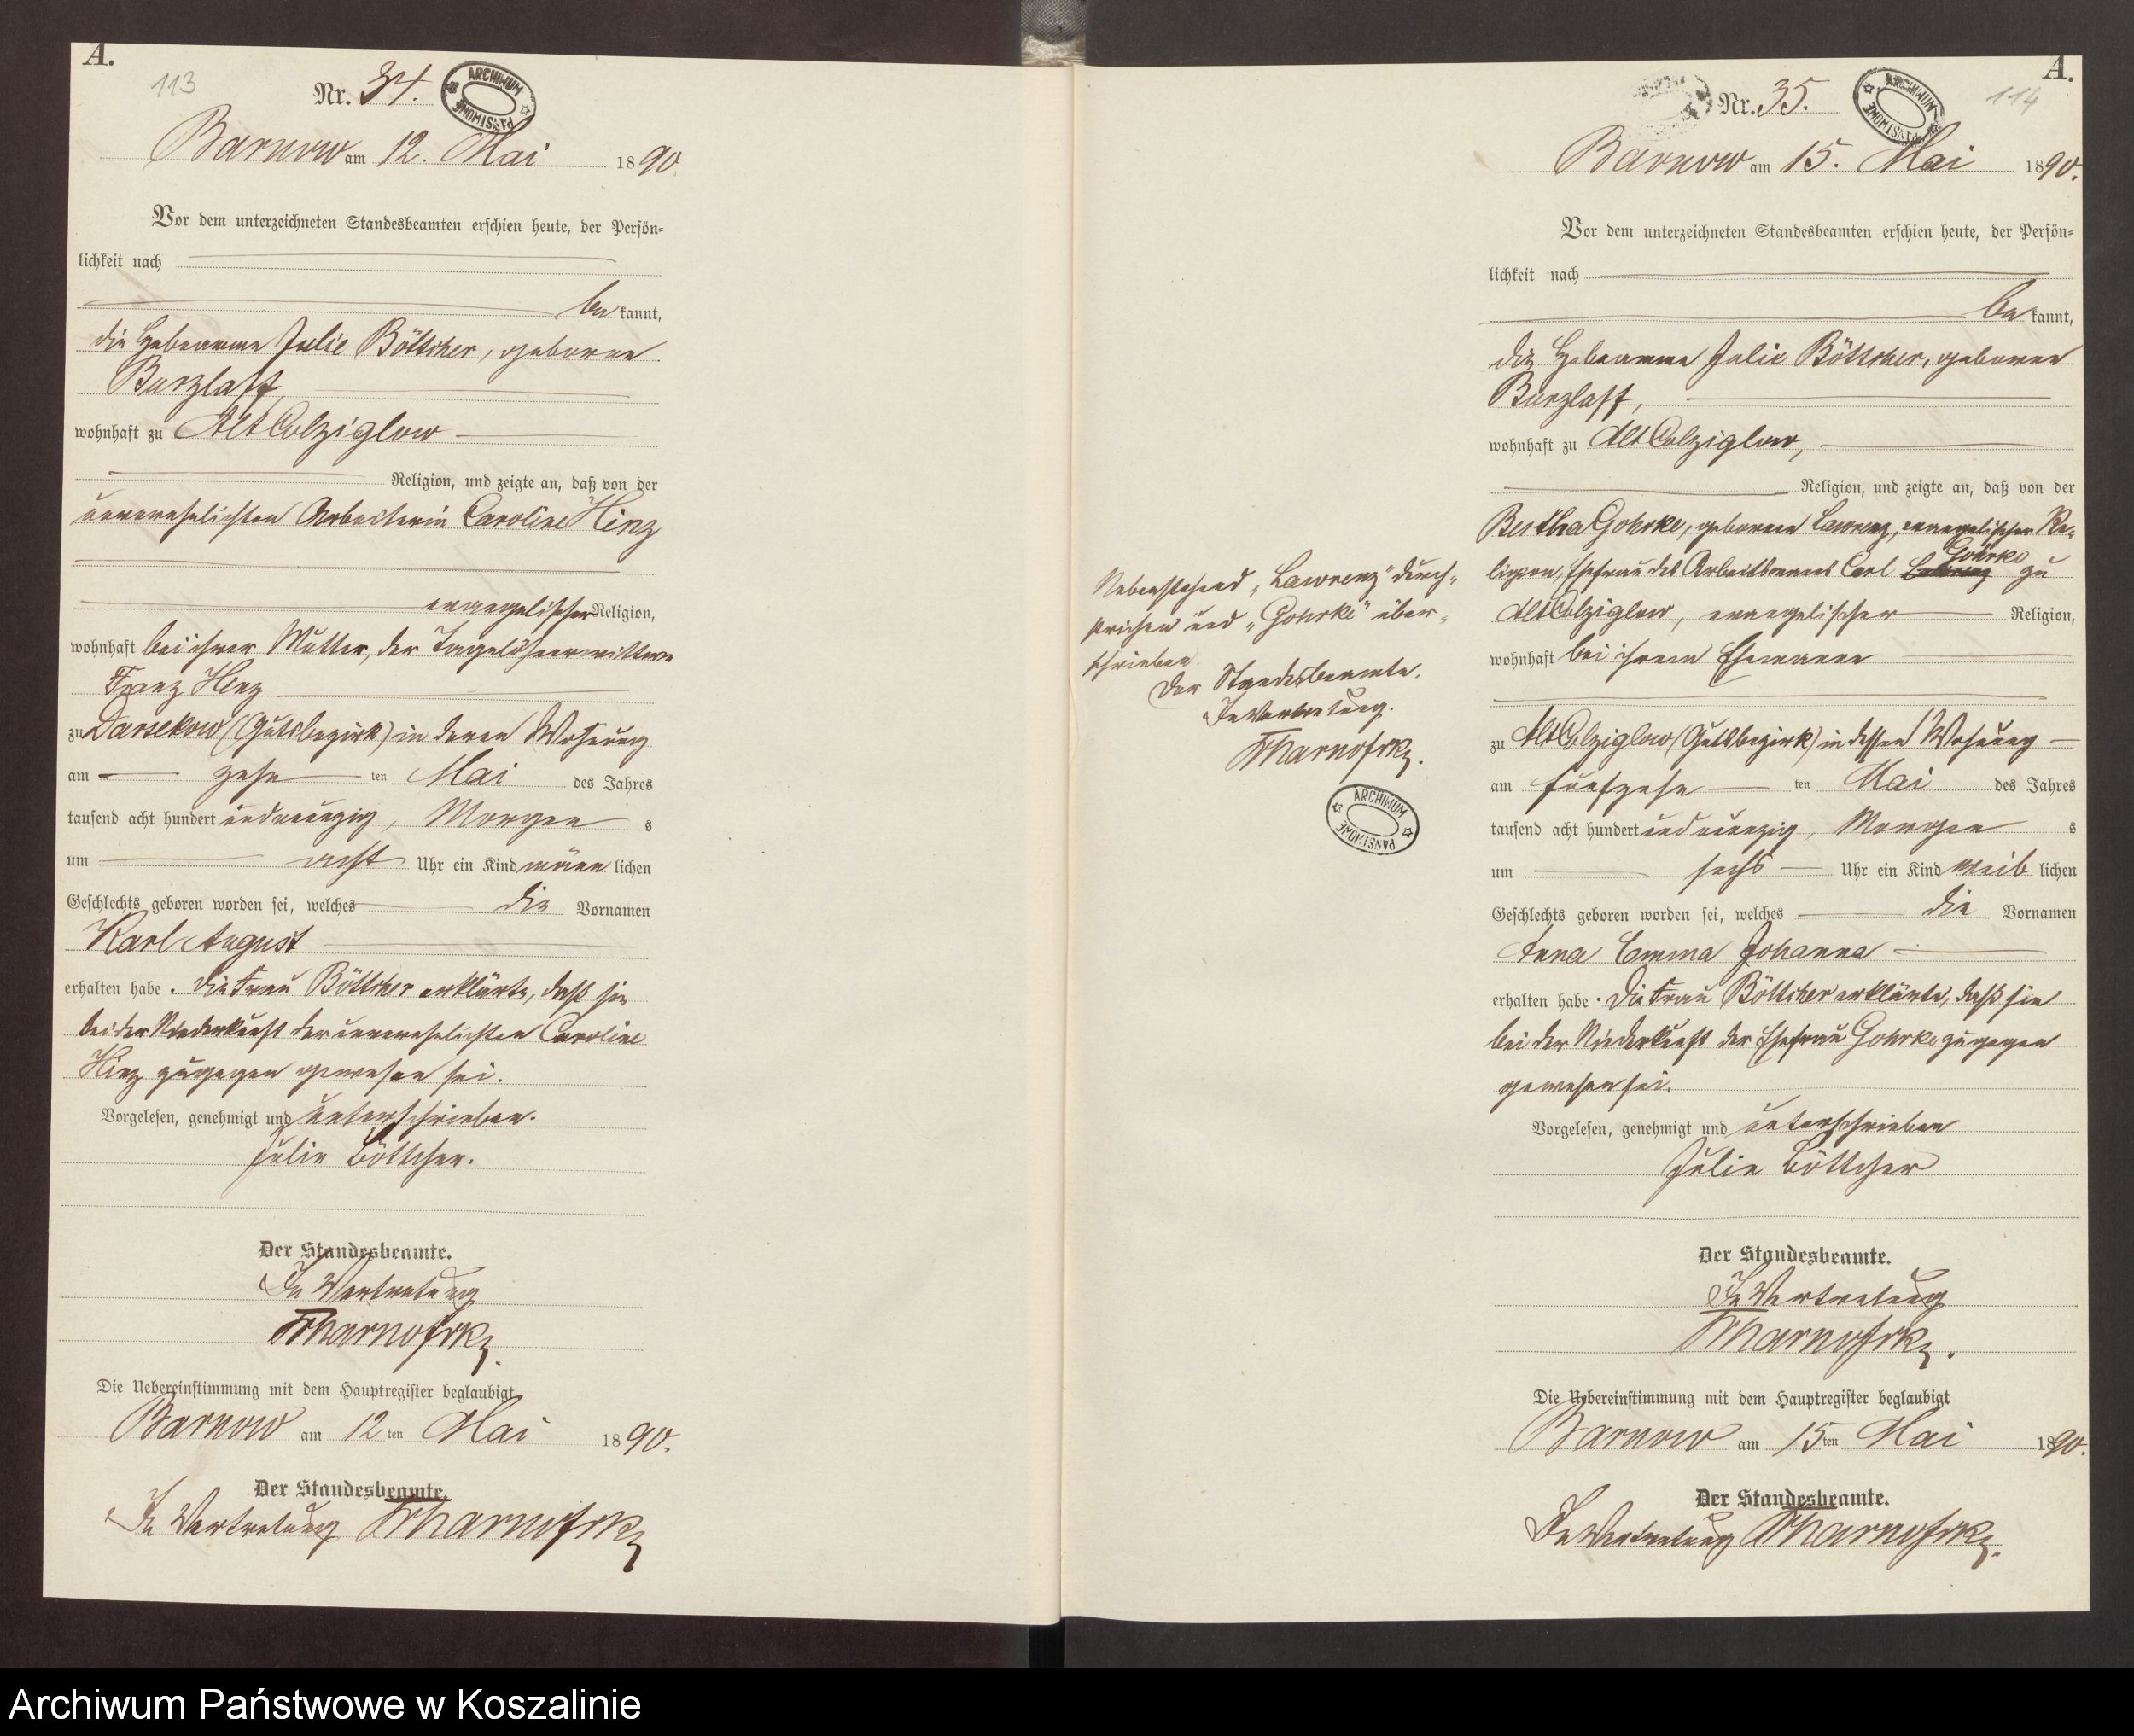 A.
113
Nr. 34.
ARCHIWUM PAŃSTWOWE
Barnow am 12. Mai 1890.
Vor dem unterzeichneten Standesbeamten erschien heute, der Persön=
lichkeit nach
bekannt,
die Hebeamme Julie Böttcher, geborene
Burzlaff,
wohnhaft zu Alt Colziglow
Religion, und zeigte an, daß von der
unverehelichten Arbeiterin Caroline Hinz
evangelischer Religion,
wohnhaft bei ihrer Mutter, der Tagelöhnerwittwe
Franz Hinz
zu Darsekow (Gutsbezirk) in deren Wohnung
am zehn ten Mai des Jahres
tausend acht hundert undneunzig, Morgen s
um acht Uhr ein Kind männ lichen
Geschlechts geboren worden sei, welches die Vornamen
Karl August
erhalten habe. Die Frau Böttcher erklärte, daß sie
bei der Niederkunft der unverehelichten Caroline
Hinz zugegen gewesen sei.
Vorgelesen, genehmigt und unterschrieben.
Julie Böttcher.
Der Standesbeamte.
In Vertretung
Die Uebereinstimmung mit dem Hauptregister beglaubigt
Barnow am 12 ten Mai 1890.
Der Standesbeamte.
In Vertretung
A.
114
Nr. 35.
ARCHIWUM PAŃSTWOWE
Barnow am 15. Mai 1890.
Vor dem unterzeichneten Standesbeamten erschien heute, der Persön=
lichkeit nach
bekannt,
die Hebeamme Julie Böttcher, geborene
Burzlaff,
wohnhaft zu Alt Colziglow,
Religion, und zeigte an, daß von der
Bertha Gohrke, geborenen Lawrenz, evangelischer Re-
ligion, Ehefrau des Arbeitsmanns Carl Lawrenz Gohrke zu
Alt Colziglow, evangelischer Religion,
wohnhaft bei ihrem Ehemanne
zu Alt Colziglow (Gutsbezirk) in dessen Wohnung
am fünfzehn ten Mai des Jahres
tausend acht hundert und neunzig, Morgen s
um sechs Uhr ein Kind weib lichen
Geschlechts geboren worden sei, welches die Vornamen
Anna Emma Johanna
erhalten habe. Die Frau Böttcher erklärte, daß sie
bei der Niederkunft der Ehefrau Gohrke zugegen
gewesen sei.
Vorgelesen, genehmigt und unterschrieben
Julie Böttcher
Der Standesbeamte.
In Vertretung
Die Uebereinstimmung mit dem Hauptregister beglaubigt
Barnow am 15 ten Mai 1890.
Der Standesbeamte.
In Vertretung
Nebenstehend "Lawrenz" durch-
strichen und "Gohrke" über-
schrieben
Der Standesbeamte.
In Vertretung.
ARCHIWUM PAŃSTWOWE
Archiwum Państwowe w Koszalinie